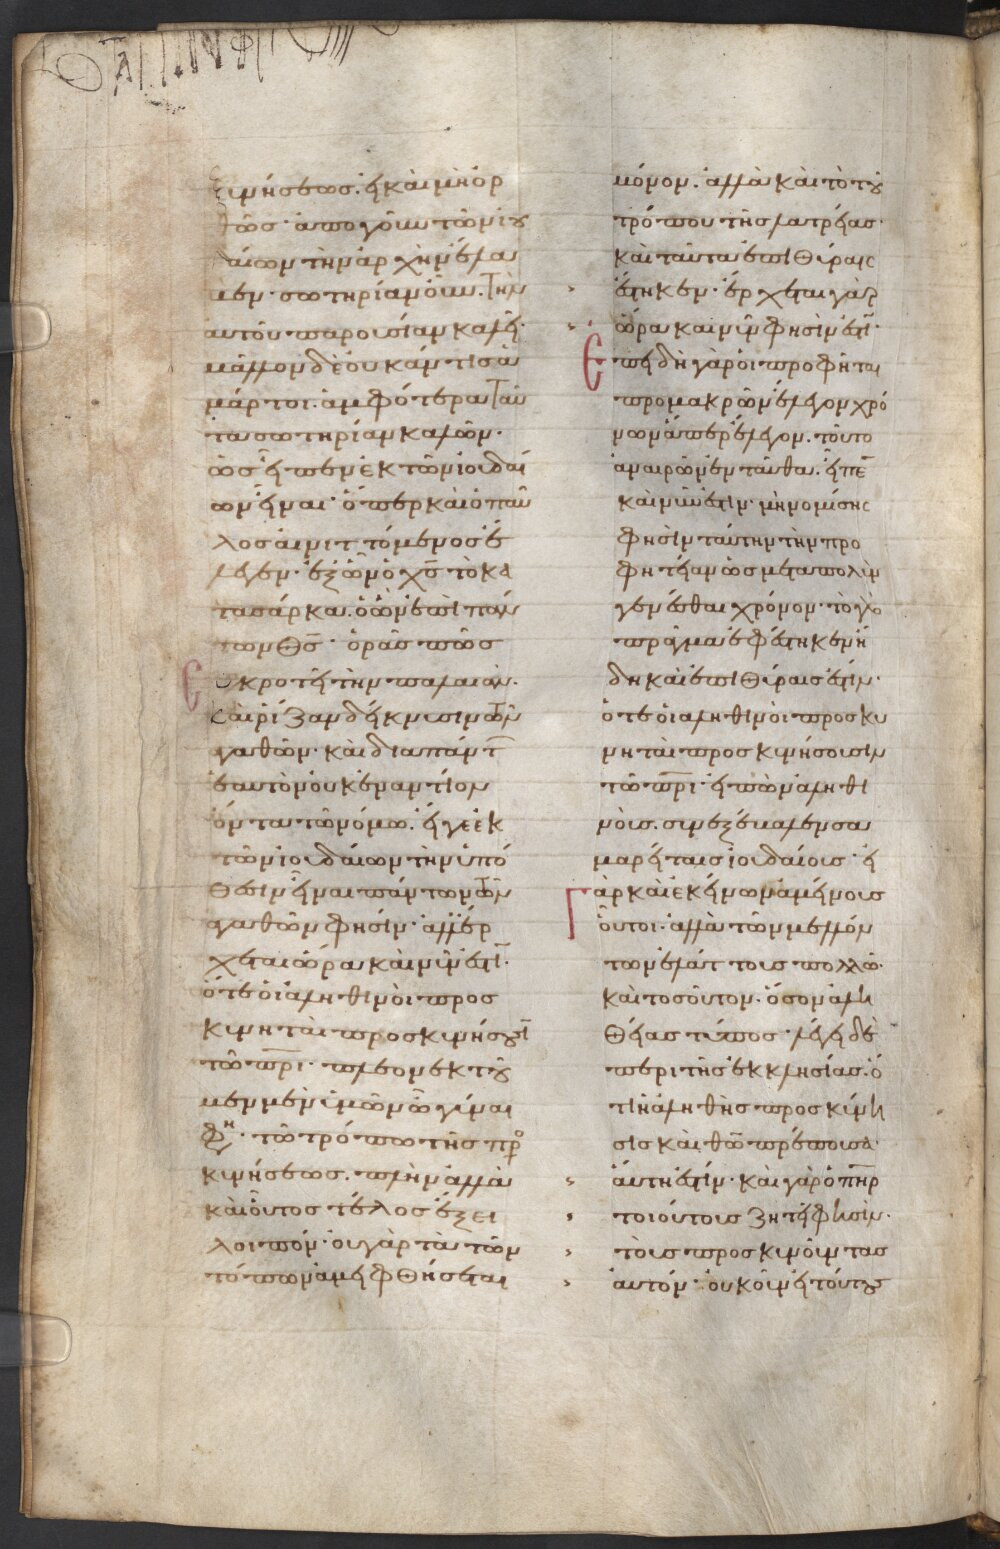 κυνήσεως. εἰ καὶ μὴ ὀρ
θῶς· ἀπὸ γοῦν τῶν ἰου
δαίων τὴν ἀρχὴν ἐλά
μεν· σωτηρίαν οὖν. τὴν
αὐτοῦ παρουσίαν καλεῖ·
μᾶλλον δὲ οὐκ ἄν τις ἁ
μάρτοι. ἀμφότερα ταῦ
τα σωτηρίαν καλῶν·
ὡς εἶπεν ἐκ τῶν ἰουδαί
ων εἶναι· ὅπερ καὶ ὁ παῦ
λος αἰνιττόμενος ἔ
λεγεν· ἐξ ὧν ὁ χς τὸ κα
τα σάρκα. ὁ ὢν ἐπὶ πάν
των θς· ὁρᾶς πῶς
συκροτεῖ τὴν παλαιάν·
καὶ ρίζαν δείκνυσιν τῶν
ἀγαθῶν· καὶ διαπάντ
ἑαυτὸν οὐκ ἐναντίον
ὄντα τῶ νόμω. εἴ γε ἐκ
τῶν ἰουδαίων τὴν ὑπό
θεσιν εἶναι πάντων τῶν
ἀγαθῶν φησίν· ἀλλ' ἔρ
χεται ὥρα καὶ νῦν ἐστι·
ὅτε οἱ ἀληθινοὶ προσ
κυνηταὶ προσκυνήσουσι
τῶ πρι· πλεονεκτοῦ
μεν μὲν ὑμῶν ὦ γύναι
φη· τῶ τρόπω τῆς προ
κυνήσεως. πλὴν ἀλλὰ
καὶ οὗτος τέλος ἕξει
λοιπόν· οὐ γὰρ τὰ τῶν
τόπων ἀμειφθήσεται
μόνον. ἀλλὰ καὶ τὸ τοῦ
τρόπου τῆς λατρείας·
καὶ ταῦτα ἐπὶ θύραις
ἕστηκεν· ἔρχεται γὰρ
ὥρα καὶ νῦν φησὶν ἐστι·
Ἐπειδὴ γὰρ οἱ προφῆται
προμακρῶν ἔλεγον χρό
νων ἅπερ ἔλεγον. τοῦτο
ἀναιρῶν ἐνταῦθα. εἶπε
καὶ νῦν ἐστιν· μὴ νομίσης
φησὶν ταύτην τὴν προ
φητείαν ὡς μετα πολὺν
γενέσθαι χρόνον· τὸ γὰρ
πρᾶγμα ἐφέστηκεν ἤ
δη καὶ ἐπὶ θύραις ἐστίν·
ὅτε οἱ ἀληθινοὶ προσκυ
νηταὶ προσκυνήσουσιν
τῶ πρι· εἰπὼν ἀληθι
νοὶς. συνεξέβαλεν σα
μαρείταις ἰουδαίοις· εἰ
γὰρ καὶ ἐκείνων ἀμείνοις
οὗτοι· ἀλλὰ τῶν μελλόν
των ἐλάττοις πολλῶ·
καὶ τοσοῦτον· ὅσον ἀλη
θείας τύπος· λέγει δὲ
περὶ τῆς ἐκκλησίας· ὅ
τι ἡ ἀληθὴς προσκύνη
σις καὶ θῶ πρέπουσα·
αὕτη ἐστίν· καὶ γὰρ ὁ πηρ
τοιούτους ζητεῖ φησίν·
τοὺς προσκυνοῦντας
αὐτόν· οὐκοῦν εἰ τούτους